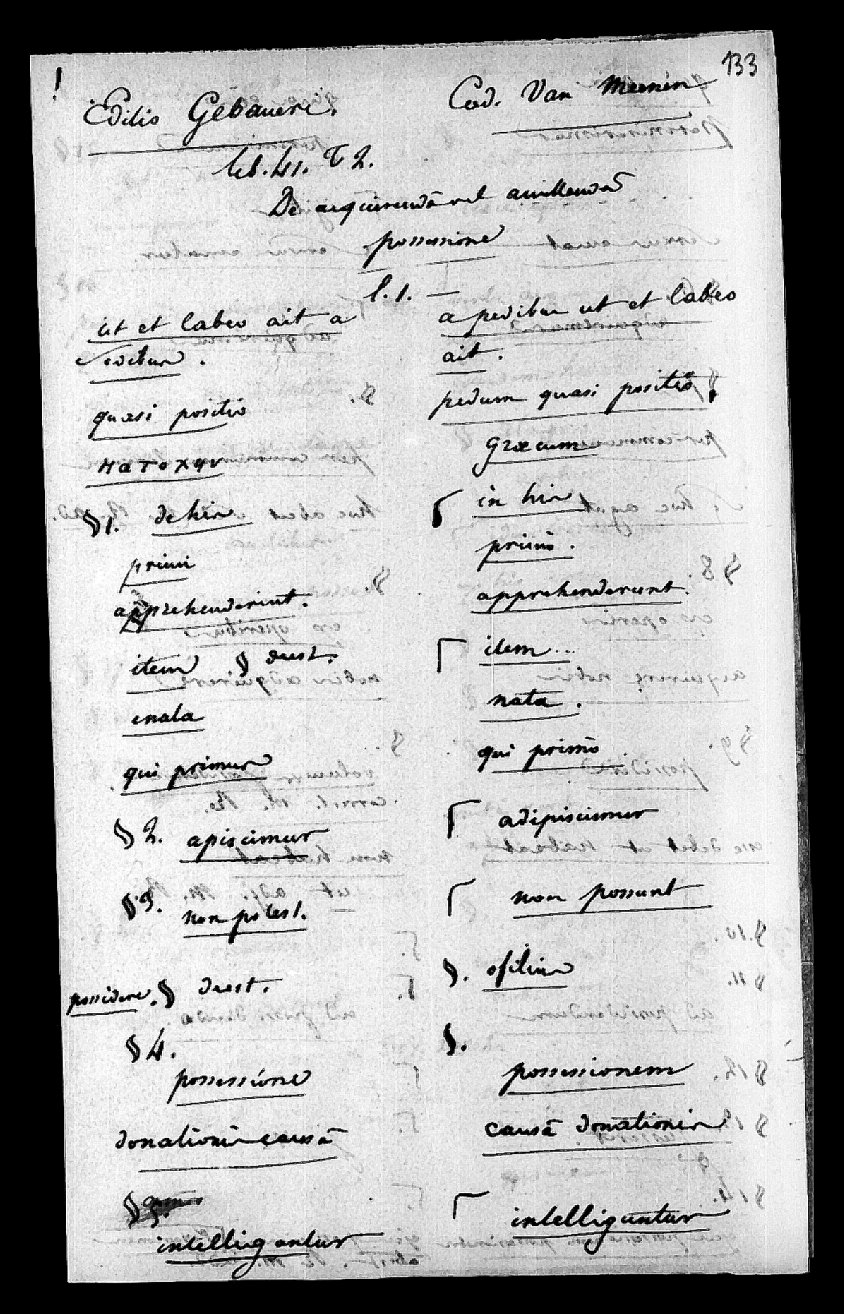 133
Editio Gebaueri.
Cod. Van Meenen
lib. 41. t 2.
De acquirendâ vel amittendâ
possessione
l. 1. —
ut et labeo ait a
sedibus.
a pedibus ut et labeo
ait.
quasi positio
pedum quasi positio,
κατοχην
græcum
§ 1. de his
in his
primi
primis.
apprehenderint.
apprehenderunt.
item § deest.
item...
enata
nata.
qui primus
qui primo
§ 2. apiscimur
adipiscimur
§ 3. non potest.
non possunt
possidere. § deest.
§.
§ 4.
§.
possessione
possessionem
donationis causâ
causâ donationis
§ 5.
intelligantur
intelliguntur